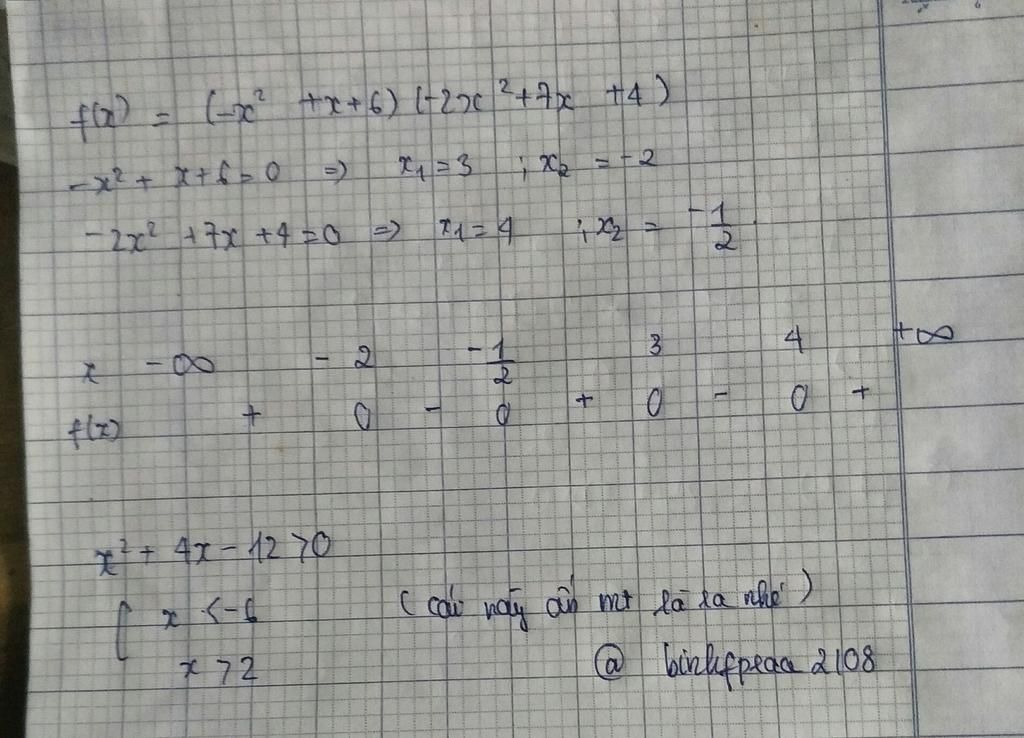 f(x) = (-x² + x + 6) (-2x² + 7x + 4)
-x² + x + 6 = 0 => x₁ = 3 ; x₂ = -2
-2x² + 7x + 4 = 0 => x₁ = 4 ; x₂ = -1/2
x -∞ -2 -1/2 3 4 +∞
f(x) + 0 - 0 + 0 - 0 +
x² + 4x - 12 > 0
[ x < -6 (cái này ấn mt là ra nhé)
x > 2 @
2108